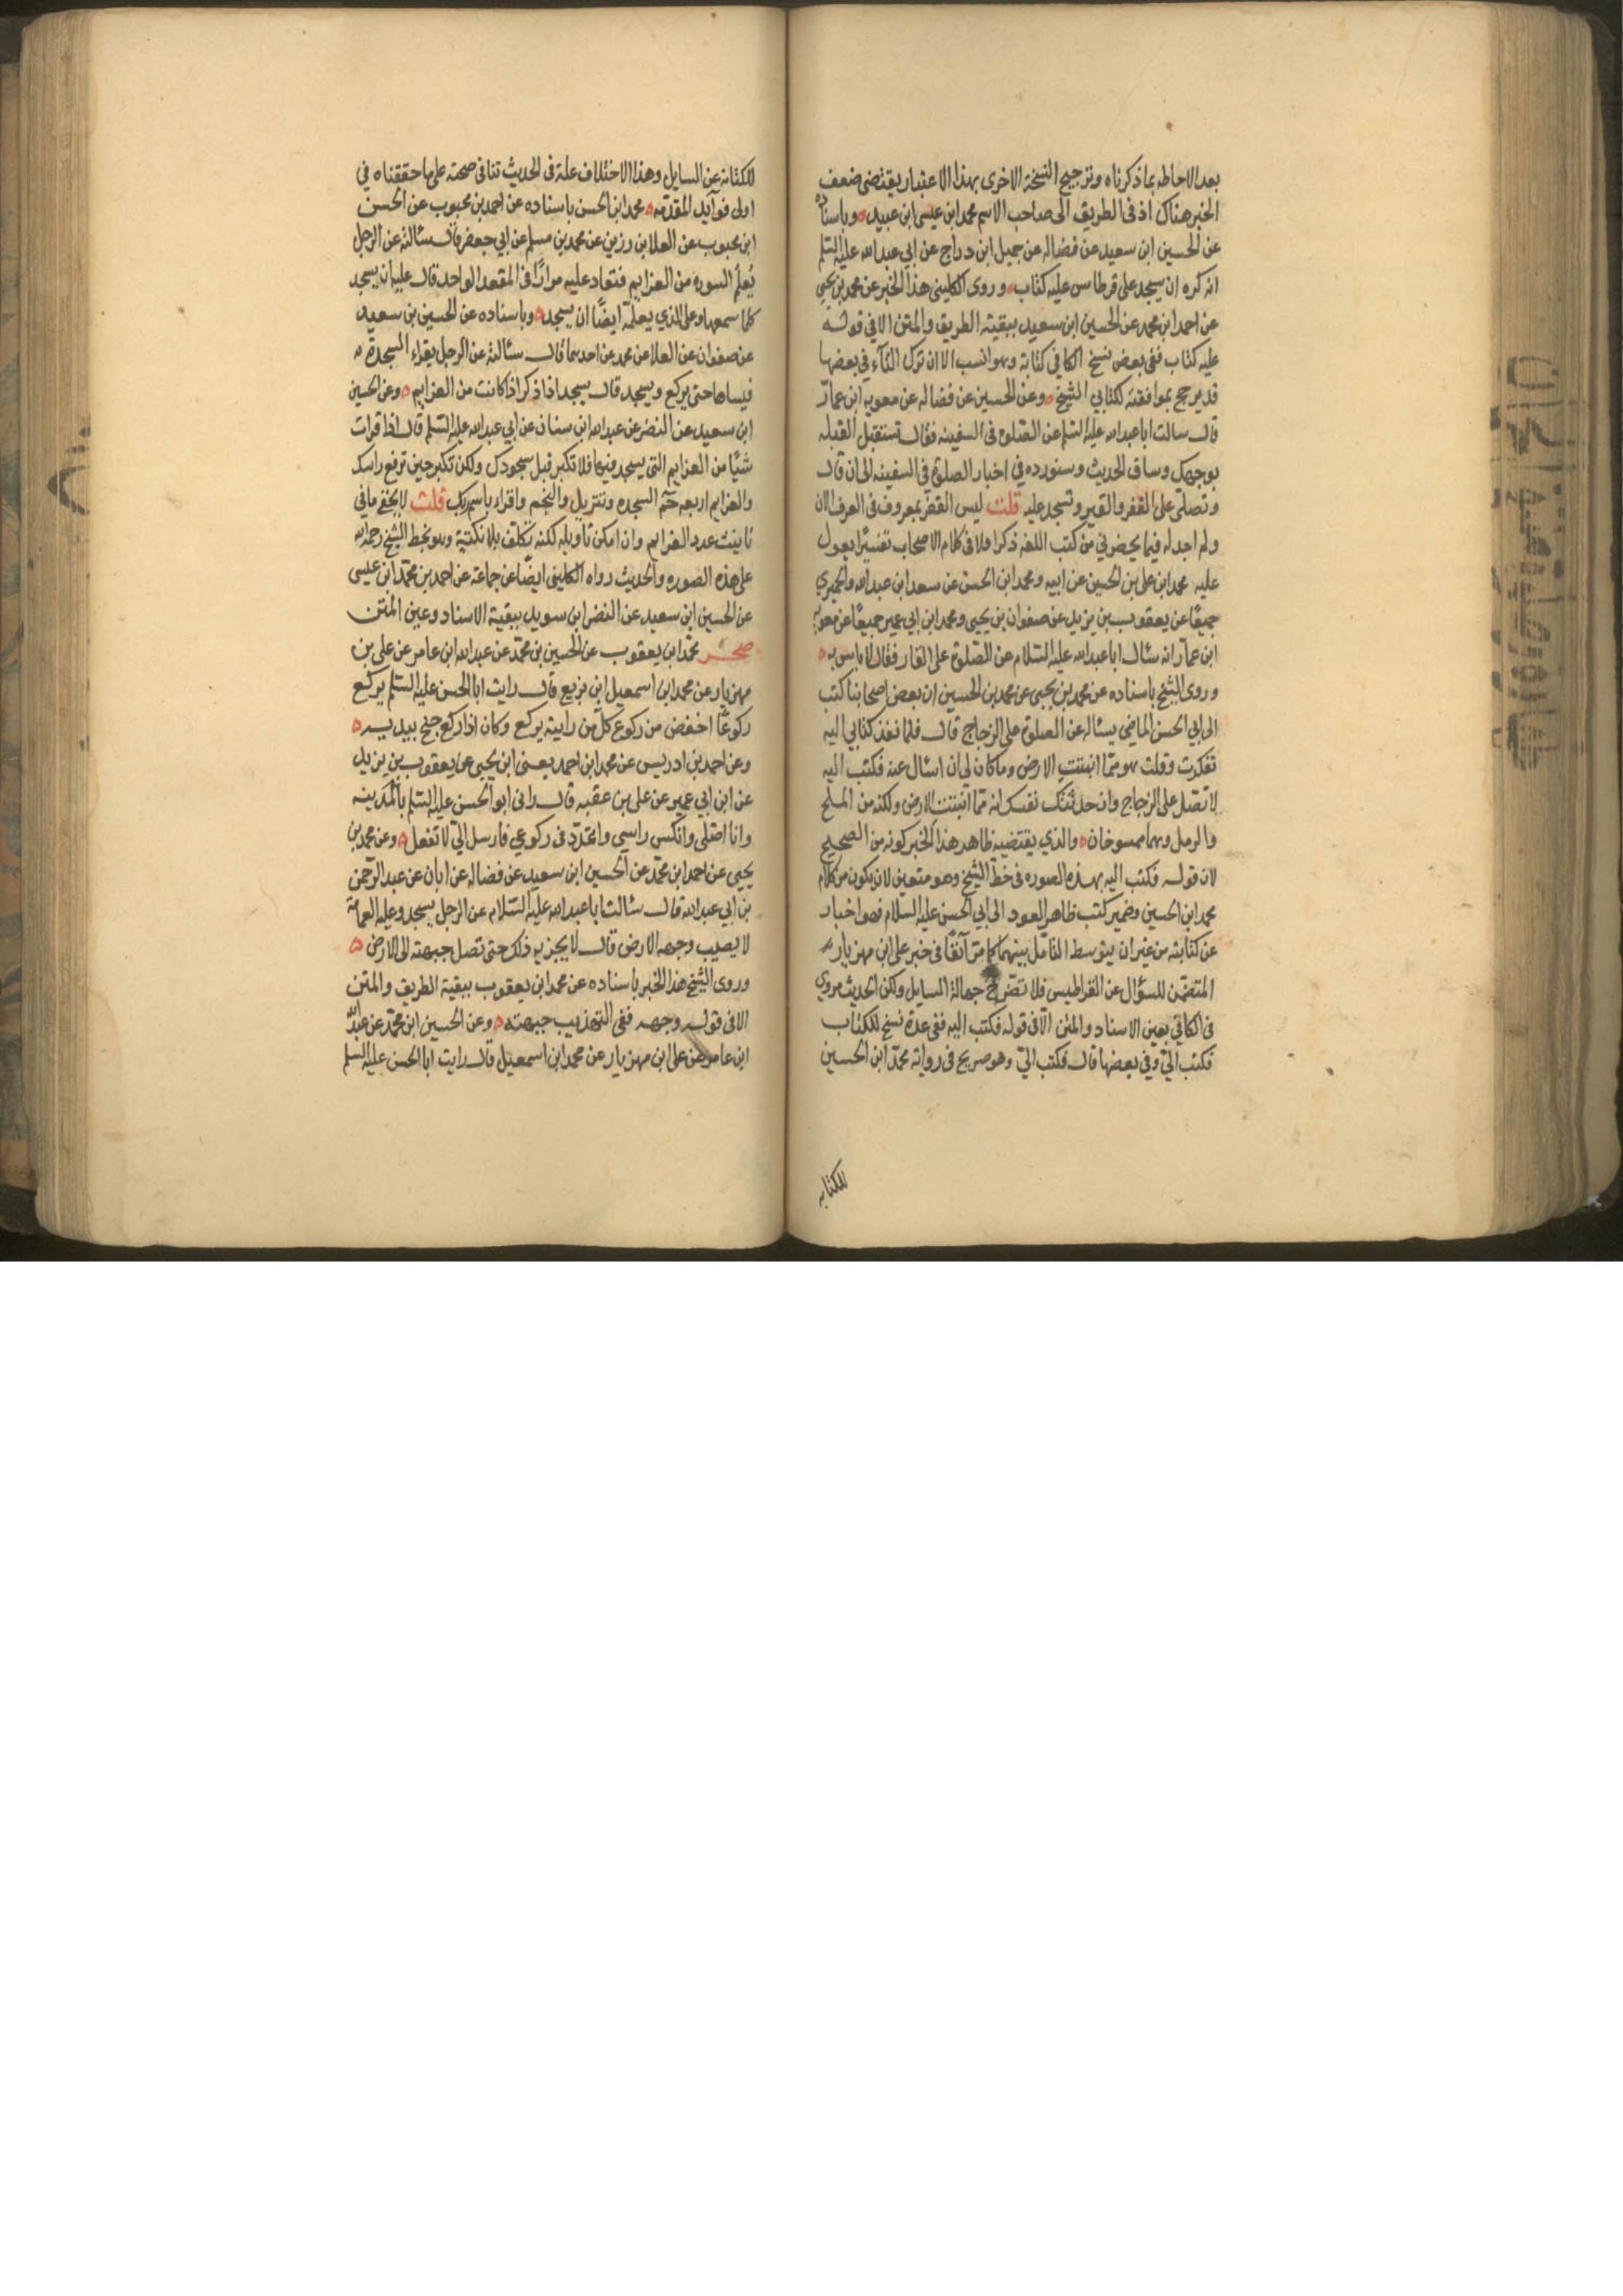 بعد الاحاطه بما ذكرناه وترجيح النسخة الاخرى بهذا الاعتبار يقتضى ضعف
الخبر هناك اذ فى الطريق الى صاحب الاسم محمد ابن عيسى ابن عبيد وباسناده
عن الحسين ابن سعيد عن فضاله عن جميل ابن دراج عن ابي عبدالله عليه السلم
انه كره ان يسجد على قرطاس عليه كتاب وروى الكليني هذا الخبر عن محمد بن يحيى
عن احمد ابن محمد عن الحسين ابن سعيد ببقية الطريق والمتن الا في قوله
عليه كتاب ففى بعض نسخ الكافي كتابة وهو انسب الا ان ترك التآء في بعضها
قد يرجح بموافقته لكتابي الشيخ وعن الحسين عن فضاله عن معويه ابن عمار
قال سالت اباعبدالله عليه السلم عن الصلوة فى السفينه فقال تستقبل القبله
بوجهك وساق الحديث وسنورده في اخبار الصلوة في السفينه الى ان قال
وتصلى على القفر والقير وتسجد عليه قلت ليس القفر بمعروف فى العرف الان
ولم اجد له فيما يحضرني من كتب اللغه ذكرا ولا فى كلام الاصحاب تفسيرًا يعول
عليه محمد ابن على بن الحسين عن ابيه ومحمد ابن الحسن عن سعد ابن عبدالله والحميري
جميعًا عن يعقوب بن يزيد عن صفوان بن يحيى ومحمد ابن ابي عمير جميعًا عن معويه
ابن عمار انه سئال اباعبدالله عليه السلام عن الصلوة على القار فقال لاباس به
وروى الشيخ باسناده عن محمد بن يحيى عن محمد بن الحسين ان بعض اصحابنا كتب
الى ابي الحسن الماضي يسئاله عن الصلوة على الزجاج قال فلما نفذ كتابي اليه
تفكرت وقلت هو ممّا انبتت الارض وما كان لي ان اسئال عنه فكتب اليه
لا تصل على الزجاج وان حدثتك نفسك انه ممّا انبتت الارض ولكنه من الملح
والرمل وهما ممسوخان والذي يقتضيه ظاهر هذا الخبر كونه من الصحيح
لان قوله فكتب اليه بهذه الصوره فى خط الشيخ وهو متعين لان يكون من كلام
محمد ابن الحسين وضمير كتب ظاهر العود الى ابي الحسن عليه السلام فهو اخبار
عن كتابته من غير ان يتوسط الناقل بينهما كما مرّ آنفًا فى خبر على ابن مهزيار
المتضمّن للسؤال عن القراطيس فلا تضر ح جهالة السايل ولكن الحديث مروي
فى الكافي بعين الاسناد والمتن الّا فى قوله فكتب اليه ففى عدة نسخ للكتاب
فكتب اليّ وفي بعضها قال فكتب اليّ وهو صريح فى رواية محمّد ابن الحسين
للكتابه
للكتابة عن السايل وهذا الاختلاف علة فى الحديث تنافى صحته على ما حققناه في
اولى فوآيد المقدّمه محمد ابن الحسن باسناده عن احمد بن محبوب عن الحسن
ابن محبوب عن العلا بن رزين عن محمد بن مسلم عن ابي جعفر قال سئالته عن الرجل
يُعلّم السوره من العزايم فتعاد عليه مرارًا فى المقعد الواحد قال عليه ان يسجد
كلما سمعها وعلى الذي يعلمه ايضًا ان يسجد وباسناده عن الحسين بن سعيد
عن صفوان عن العلا عن محمد عن احدهما قال سئالته عن الرجل يقراء السجدة
فينساها حتى يركع ويسجد قال يسجد اذا ذكر اذا كانت من العزايم وعن الحسين
ابن سعيد عن النضر عن عبدالله ابن سنان عن ابي عبدالله عليه السلم قال اذا قرات
شيًا من العزايم التى يسجد فيها فلا تكبر قبل سجودك ولكن تكبر حين ترفع راسك
والعزايم اربعه حمّ السجده وتنزيل والنجم واقراء باسم ربك قلت لا يخفى ما في
تانيث عدد العزايم وان امكن تاويله لكنه تكلف بلا نكتة وهو بخط الشيخ رحمه الله
على هذه الصوره والحديث رواه الكليني ايضًا عن جماعة عن احمد بن محمّد ابن عيسى
عن الحسين ابن سعيد عن النضر ابن سويد ببقية الاسناد وعين المتن
صحر محمّد ابن يعقوب عن الحسين بن محمّد عن عبدالله ابن عامر عن على بن
مهزيار عن محمد ابن اسمعيل ابن بزيع قال رايت ابا الحسن عليه السلم يركع
ركوعًا اخفض من ركوع كل من رايته يركع وكان اذا ركع جنح بيديه
وعن احمد بن ادريس عن محمد ابن احمد يعنى ابن يحيى عن يعقوب بن يزيد
عن ابن ابي عمير عن على بن عقبه قال رانى ابوالحسن عليه السلم بالمدينه
وانا اصلى وانكس راسي واتمدّد فى ركوعي فارسل اليّ لا تفعل وعن محمد بن
يحيى عن احمد ابن محمّد عن الحسين ابن سعيد عن فضاله عن ابان عن عبدالرحمن
بن ابي عبدالله قال سئالت اباعبدالله عليه السّلام عن الرجل يسجد وعليه العمامة
لا يصيب وجهه الارض قال لا يجزيه ذلك حتى تصل جبهته الى الارض
وروى الشيخ هذا الخبر باسناده عن محمد ابن يعقوب ببقية الطريق والمتن
الا فى قوله وجهه ففى التهذيب جبهته وعن الحسين ابن محمّد عن عبدالله
ابن عامر عن على ابن مهزيار عن محمد ابن اسمعيل قال رايت ابا الحسن عليه السلم